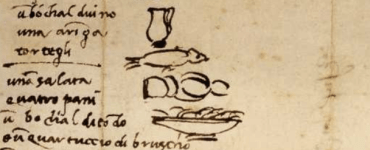 u bochal duino
una aringa
tortegli
una salata
quatro pani
u bochal di todo
e u quartuccio di bruscho